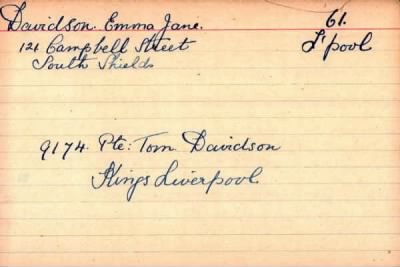 Davidson. Emma Jane. 61.
121 Campbell Street L'pool
South Shields
9174. Pte: Tom Davidson
Kings Liverpool